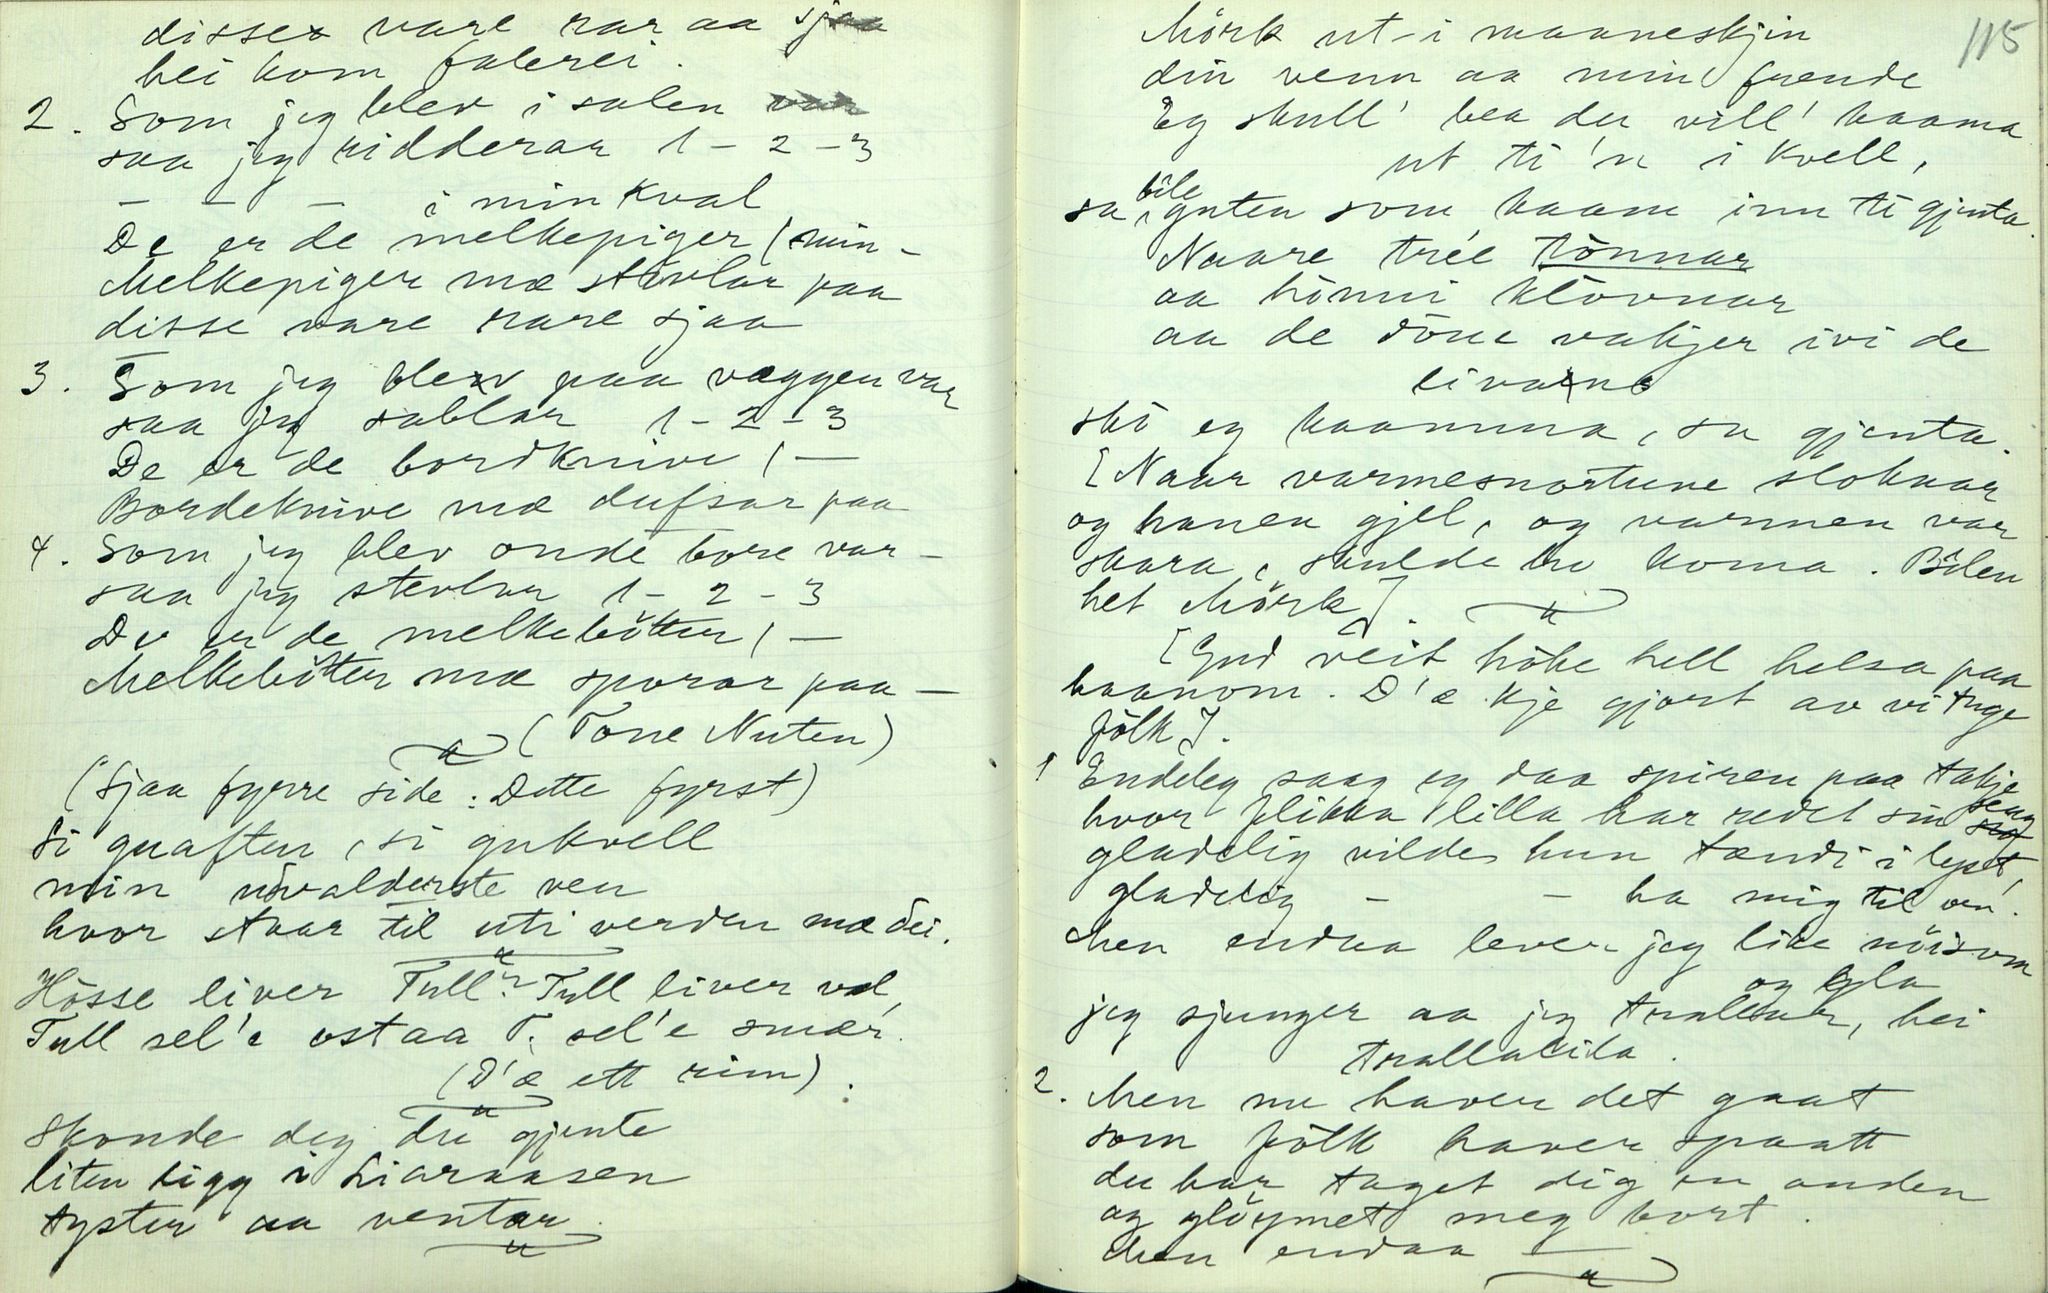 disse vare rar aa sjaa
hei kom falerei.
2. Som jeg blev i salen var
saa jeg ridderar 1 - 2 - 3
- - - i min kval
De er de melkepiger, min -
Melkepiger mæ stevlar paa
disse vare rare sjaa
3. Som jeg blev paa væggen var
saa jeg sablar 1 - 2 - 3
De er de bordknive, -
Bordeknive mæ dufsar paa
4. Som jeg blev onde bore var -
saa jeg stevlar 1 - 2 - 3
De er de melkebötter, -
Melkebötter mæ sporar paa -
(Tone Nuten)
(Sjaa fyrre side: Dette fyrst)
Si guaften, si gukvell
min uvalderste ven
hvor staar til uti verden mæ dei.
Hösse liver Tull? Tull liver vel,
Tull sel'e ost aa T. sel'e smör.
(D'æ ett rim).
Skonde deg du gjente
liten ligg i Liaraasen
tyster aa ventar
115
Mörk ut i maaneskjin
din venn aa min frende
Eg skull' bea du vill' kaama
ut ti 'n i kvell,
sa bile guten som kaam inn ti gjenta.
Naare tréé tönnar
aa hönni klövnar
aa de döue vakjer ivi de
livane
ski eg kaamma, sa gjenta.
[Naar varmesnortune sloknar
og hanen gjel, og varmen var
skara, skulde ho koma. Bilen
het Mörk].
[Gud veit höke hell helsa paa
haanom. D'æ kje gjort av vituge
fölk].
1 Endeleg saag eg daa spiren paa takje
hvor flikka lilla har redet sin seng
gladelig vilde hun tændt i lyset,
gladelig - - ha mig til ven.
Men endaa lever jeg like nöisom
og gla
jeg sjunger aa jeg trallar, hei
trallalila.
2. Men nu haver det gaat
som fölk haver spaatt
du har taget dig en anden
og glöymet meg bort.
Men endaa —